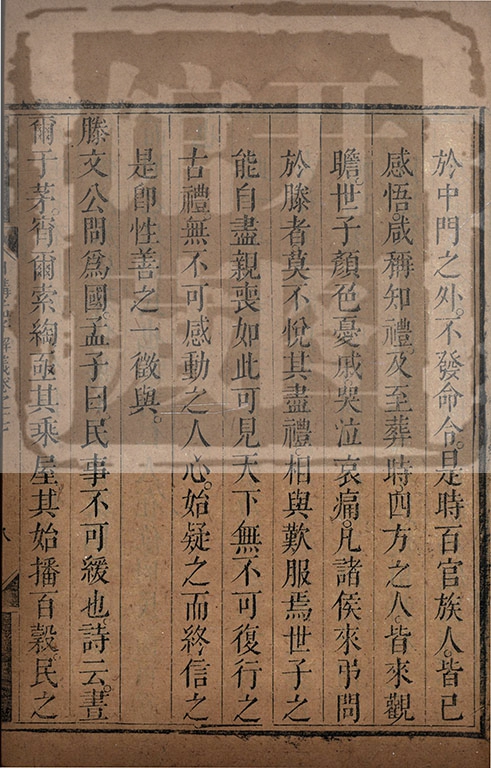 於中門之外。不發命令。是時百官族人。皆已
感悟。咸稱知禮。及至葬時。四方之人。皆來觀
瞻。世子顏色憂戚。哭泣哀痛。凡諸侯來弔問
於滕者。莫不悅其盡禮。相與歎服焉。世子之
能自盡親喪如此。可見天下無不可復行之
古禮。無不可感動之人心。始疑之而終信之。
是卽性善之一徵與。
滕文公問爲國。孟子曰。民事不可緩也。詩云。晝
爾于茅。宵爾索綯。亟其乘屋。其始播百穀。民之